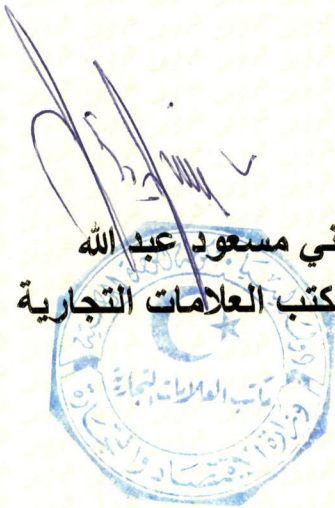 ني مسعود عبد الله
كتب العلامات التجارية
مكاتب العلامات التجارية
وزارة الاقتصاد والتجارة